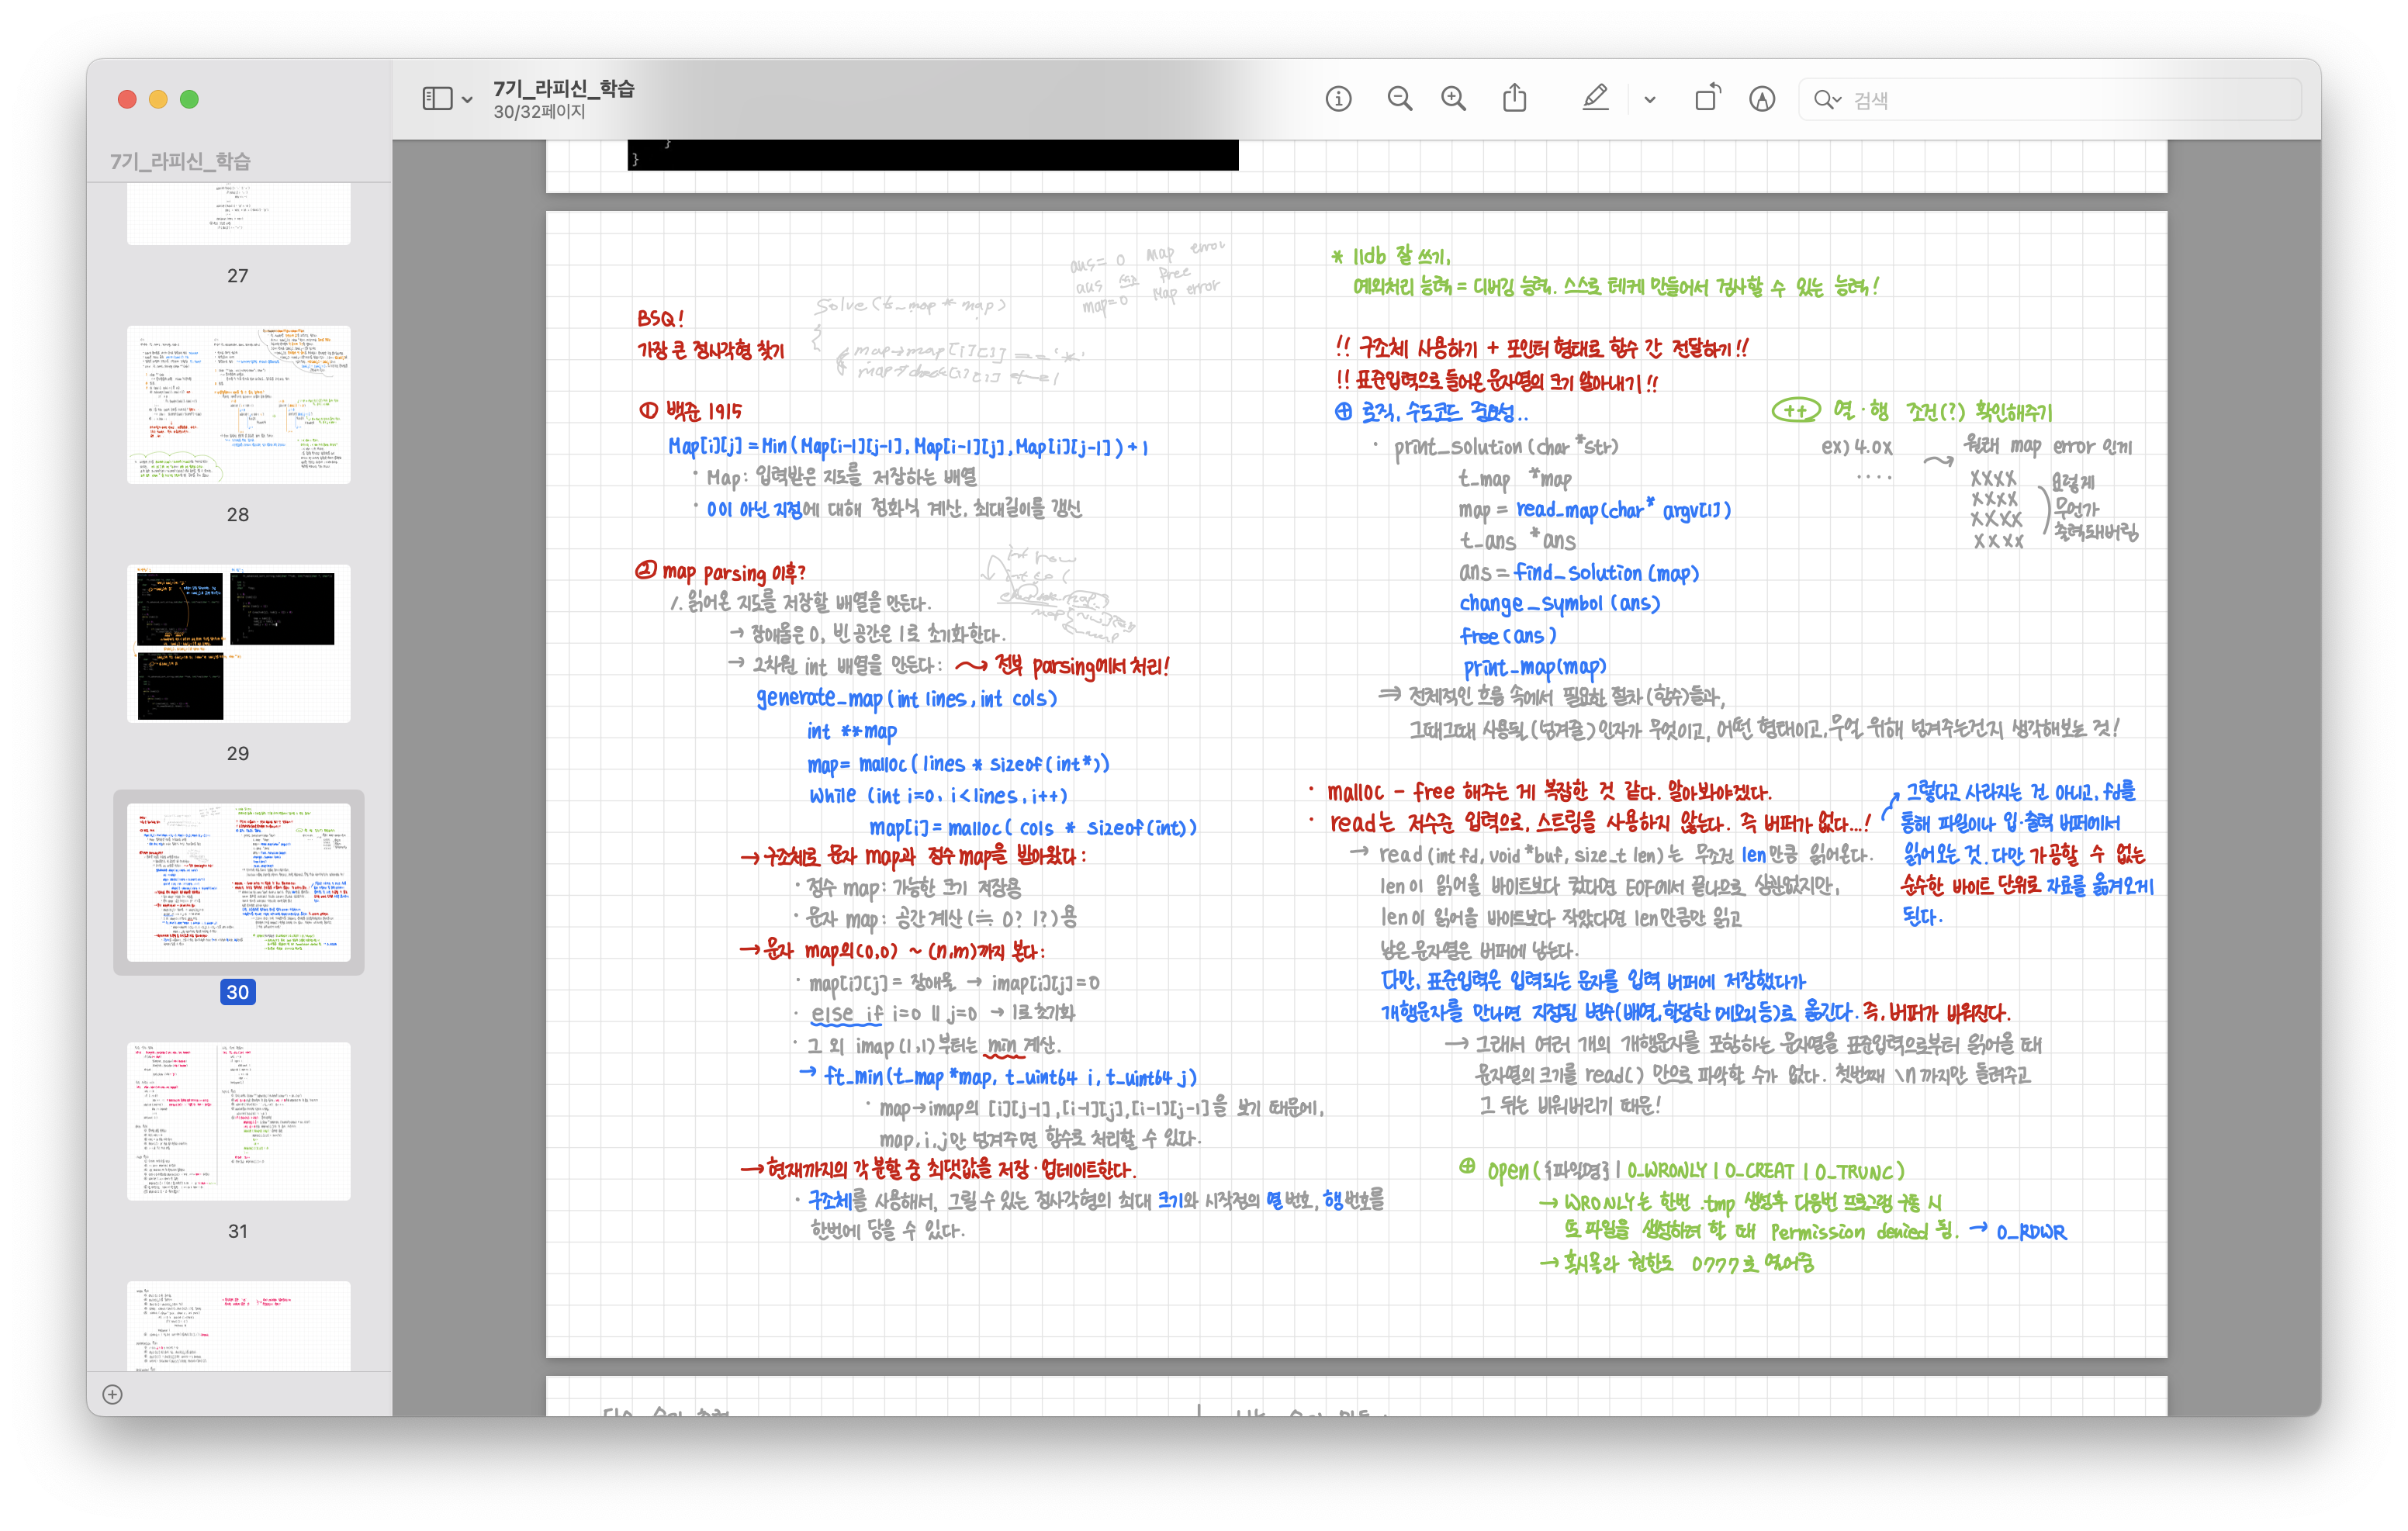 7기_라피신_학습
30/32페이지
검색
7기_라피신_학습
27
28
29
30
31
}
}
ans = 0 Map error
ans free
map=0 Map error
Solve (t_map * map)
{
map→map[i][j] == '*'
BSQ!
가장 큰 정사각형 찾기
① 백준 1915
Map[i][j] = Min ( Map[i-1][j-1], Map[i-1][j], Map[i][j-1] ) + 1
· Map: 입력받은 지도를 저장하는 배열
· 0이 아닌 지점에 대해 점화식 계산, 최대길이를 갱신
② map parsing 이후?
1. 읽어온 지도를 저장할 배열을 만든다.
→ 장애물은 0, 빈 공간은 1로 초기화한다.
→ 2차원 int 배열을 만든다: ⤳ 전부 parsing에서 처리!
generate_map (int lines, int cols)
int **map
map = malloc ( lines * sizeof(int*))
While (int i=0, i<lines, i++)
map[i] = malloc( cols * sizeof(int))
→ 구조체로 문자 map과 정수 map을 받아왔다:
· 정수 map: 가능한 크기 저장용
· 문자 map: 공간 계산 (≒ 0? 1?) 용
→ 문자 map의 (0,0) ~ (n,m)까지 본다:
· map[i][j] = 장애물 → imap[i][j]=0
· else if i=0 || j=0 → 1로 초기화
· 그 외 imap (1,1) 부터는 min 계산.
→ ft_min(t_map *map, t_uint64 i, t_uint64 j)
· map→imap의 [i][j-1], [i-1][j], [i-1][j-1]을 보기 때문에,
map, i, j만 넘겨주면 함수로 처리할 수 있다.
→ 현재까지의 각 분할 중 최댓값을 저장·업데이트한다.
· 구조체를 사용해서, 그릴 수 있는 정사각형의 최대 크기와 시작점의 열번호, 행번호를
한번에 담을 수 있다.
* lldb 잘 쓰기,
예외처리 능력 = 디버깅 능력. 스스로 테케 만들어서 검사할 수 있는 능력!
!! 구조체 사용하기 + 포인터 형태로 함수 간 전달하기 !!
!! 표준입력으로 들어온 문자열의 크기 알아내기 !!
⊕ 로직, 수도코드 중요성..
· print_solution (char *str)
t_map *map
map = read_map(char* argv[1])
t_ans *ans
ans = find_solution (map)
change_symbol (ans)
free (ans)
print_map(map)
⇒ 전체적인 흐름 속에서 필요한 절차 (함수)들과,
그때그때 사용될 (넘겨줄) 인자가 무엇이고, 어떤 형태이고, 무얼 위해 넘겨주는건지 생각해보는 것!
++ 열·행 조건(?) 확인해주기
ex) 4.ox
....
원래 map error 인게
XXXX
XXXX
XXXX
XXXX
요렇게
무언가
출력돼버림
· malloc - free 해주는 게 복잡한 것 같다. 알아봐야겠다.
· read는 저수준 입력으로, 스트림을 사용하지 않는다. 즉 버퍼가 없다...!
→ read (int fd, void *buf, size_t len) 는 무조건 len만큼 읽어온다.
len이 읽어올 바이트보다 컸다면 EOF에서 끝나므로 상관없지만,
len이 읽어올 바이트보다 작았다면 len만큼만 읽고
남은 문자열은 버퍼에 남는다.
다만, 표준입력은 입력되는 문자를 입력 버퍼에 저장했다가
개행문자를 만나면 지정된 변수(배열, 할당한 메모리 등)로 옮긴다. 즉, 버퍼가 비워진다.
→ 그래서 여러 개의 개행문자를 포함하는 문자열을 표준입력으로부터 읽어올 때
문자열의 크기를 read() 만으로 파악할 수가 없다. 첫번째 \n 까지만 돌려주고
그 뒤는 비워버리기 때문!
그렇다고 사라지는 건 아니고, fd를
통해 파일이나 입·출력 버퍼에서
읽어오는 것. 다만 가공할 수 없는
순수한 바이트 단위로 자료를 옮겨오게
된다.
⊕ open ( {파일명} | O_WRONLY | O_CREAT | O_TRUNC )
→ WRONLY는 한번 .tmp 생성후 다음번 프로그램 구동 시
또 파일을 생성하려 할 때 Permission denied 됨. → O_RDWR
→ 혹시몰라 권한도 0777로 열어줌